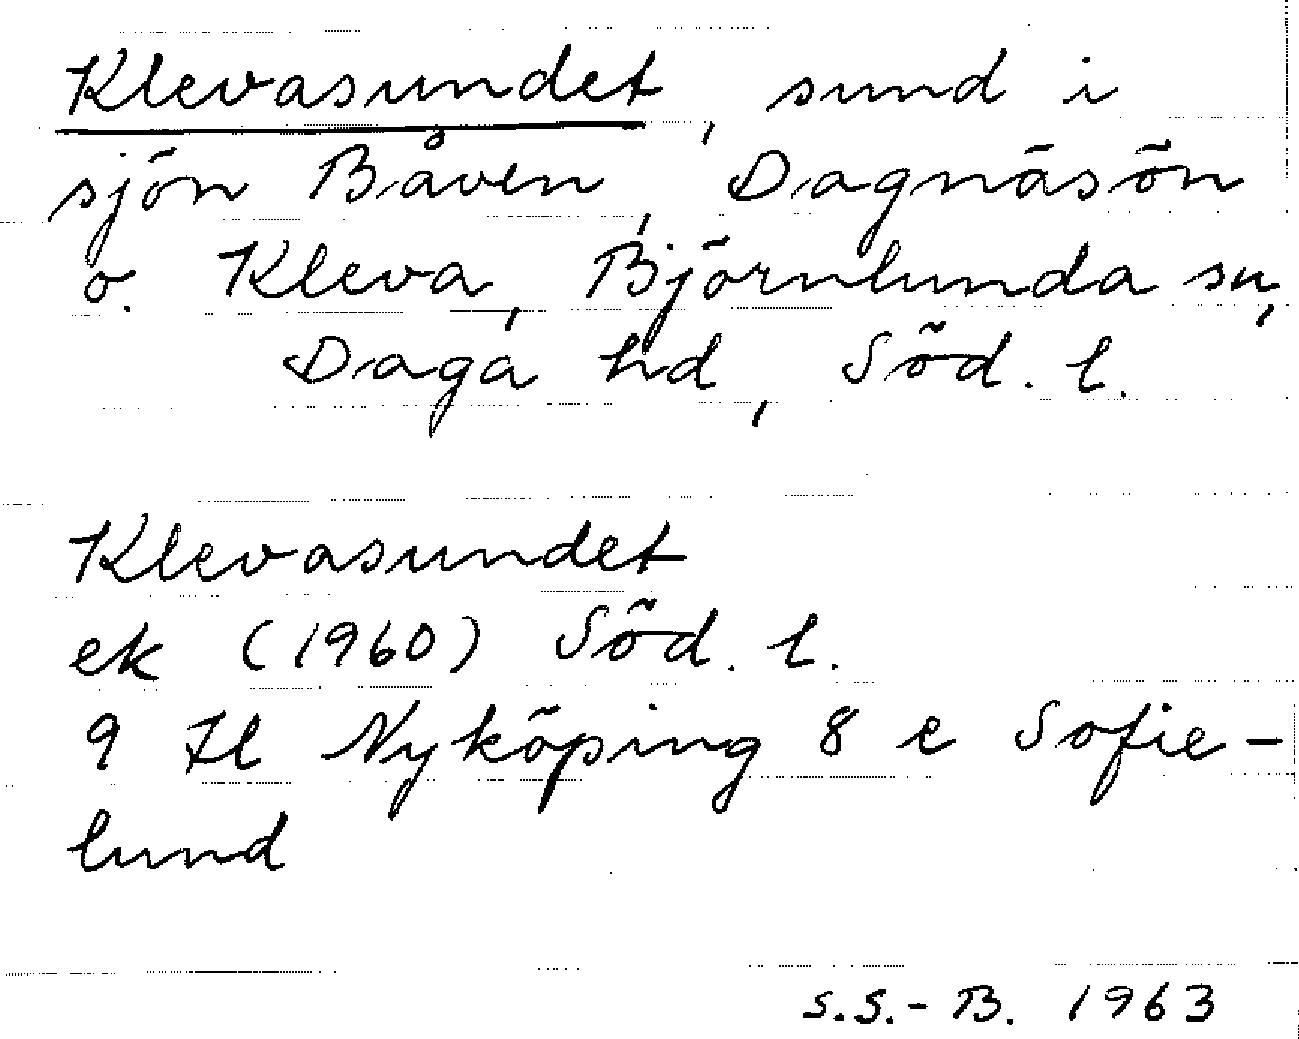 Klevasundet, sund i
sjön Båven, Dagnäsön
o. Kleva, Björnlunda sn,
Daga hd, Söd. l.
Klevasundet
ek (1960) Söd. l.
9 H Nyköping 8 e Sofie-
lund
S.S.-B. 1963